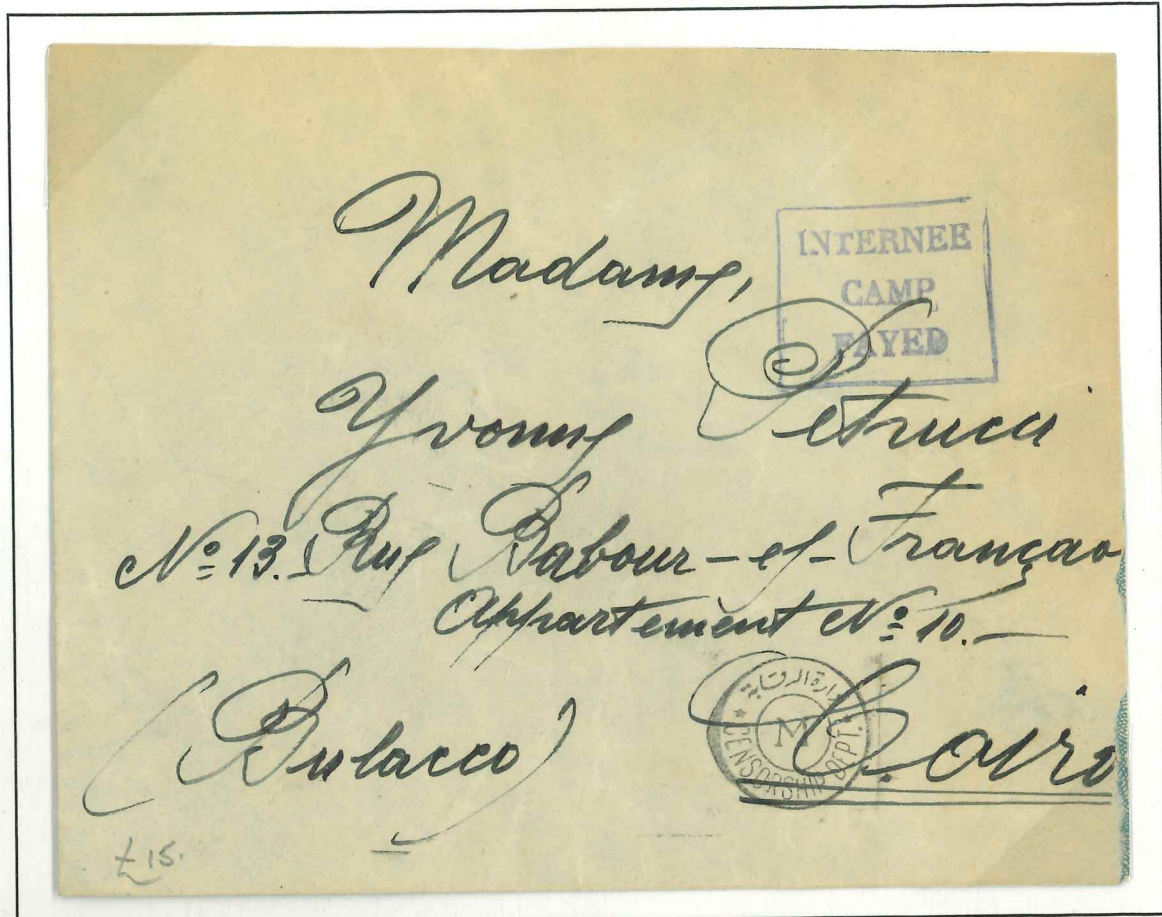 Madame,
INTERNEE
CAMP
FAYED
Yvonne Petrucci
Nº 13. Rue Babour-el-Françao
Appartement Nº 10.—
(Bulacco) Cairo
إدارة الرقابة
M
CENSORSHIP DEPT.
£15.